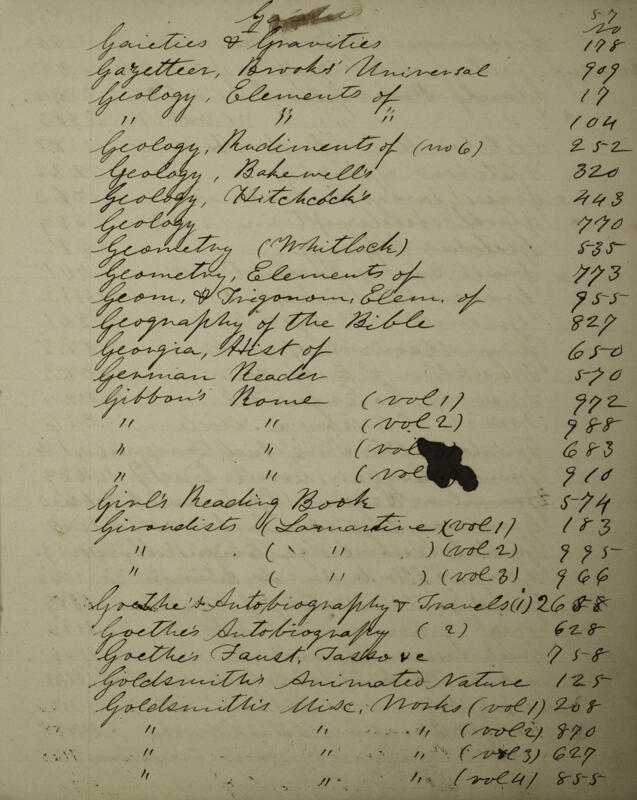 Ga 57
20
Gaieties & Gravities 178
Gazetteer, Brooks' Universal 909
Geology, Elements of 17
" " " 104
Geology, Rudiments of (no 6) 252
Geology, Bakewell's 320
Geology, Hitchcock's 443
Geology 770
Geometry (Whitlock) 535
Geometry, Elements of 773
Geom. & Trigonom. Elem. of 955
Geography of the Bible 827
Georgia, Hist of 650
German Reader 570
Gibbon's Rome (vol 1) 972
" " (vol 2) 988
" " (vol 3) 683
" " (vol 910
Girl's Reading Book 574
Girondists (Lamartine) (vol 1) 183
" ( " ) (vol 2) 995
" ( " ) (vol 3) 966
Goethe's Autobiography & Travels (1) 2688
Goethe's Autobiography (2) 628
Goethe's Faust, Tasso &c 758
Goldsmith's Animated Nature 125
Goldsmith's Misc. Works (vol 1) 208
" " " (vol 2) 870
" " " (vol 3) 627
" " " (vol 4) 855